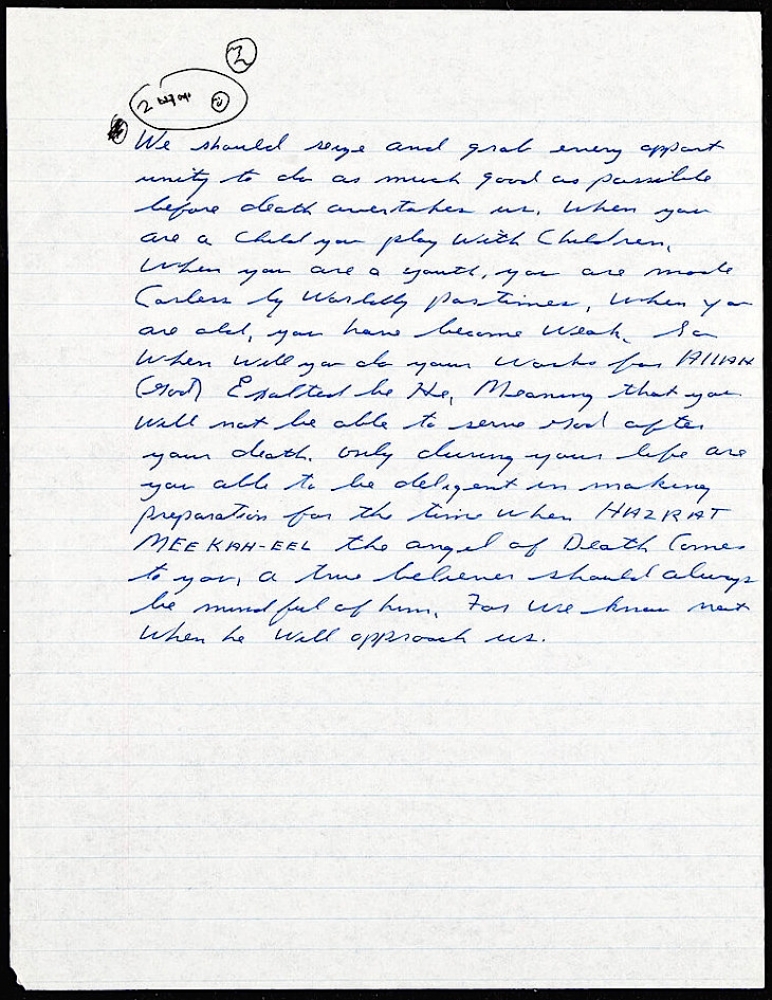 2
2
We should seize and grab every opport
unity to do as much good as possible
before death overtakes us. When you
are a child you play with Children.
When you are a youth, you are made
Careless by Worldly pastimes, When you
are old, you have become Weak. So
When Will you do your Works for AllAH
(God) Exalted be He, Meaning that you
Will not be able to serve God after
your death. only during your life are
you able to be deligent in making
preparation for the time when HAZRAT
MEEKAH-EEL the angel of Death Comes
to you, a true believer should always
be mindful of him. For we know not
When he Will approach us.